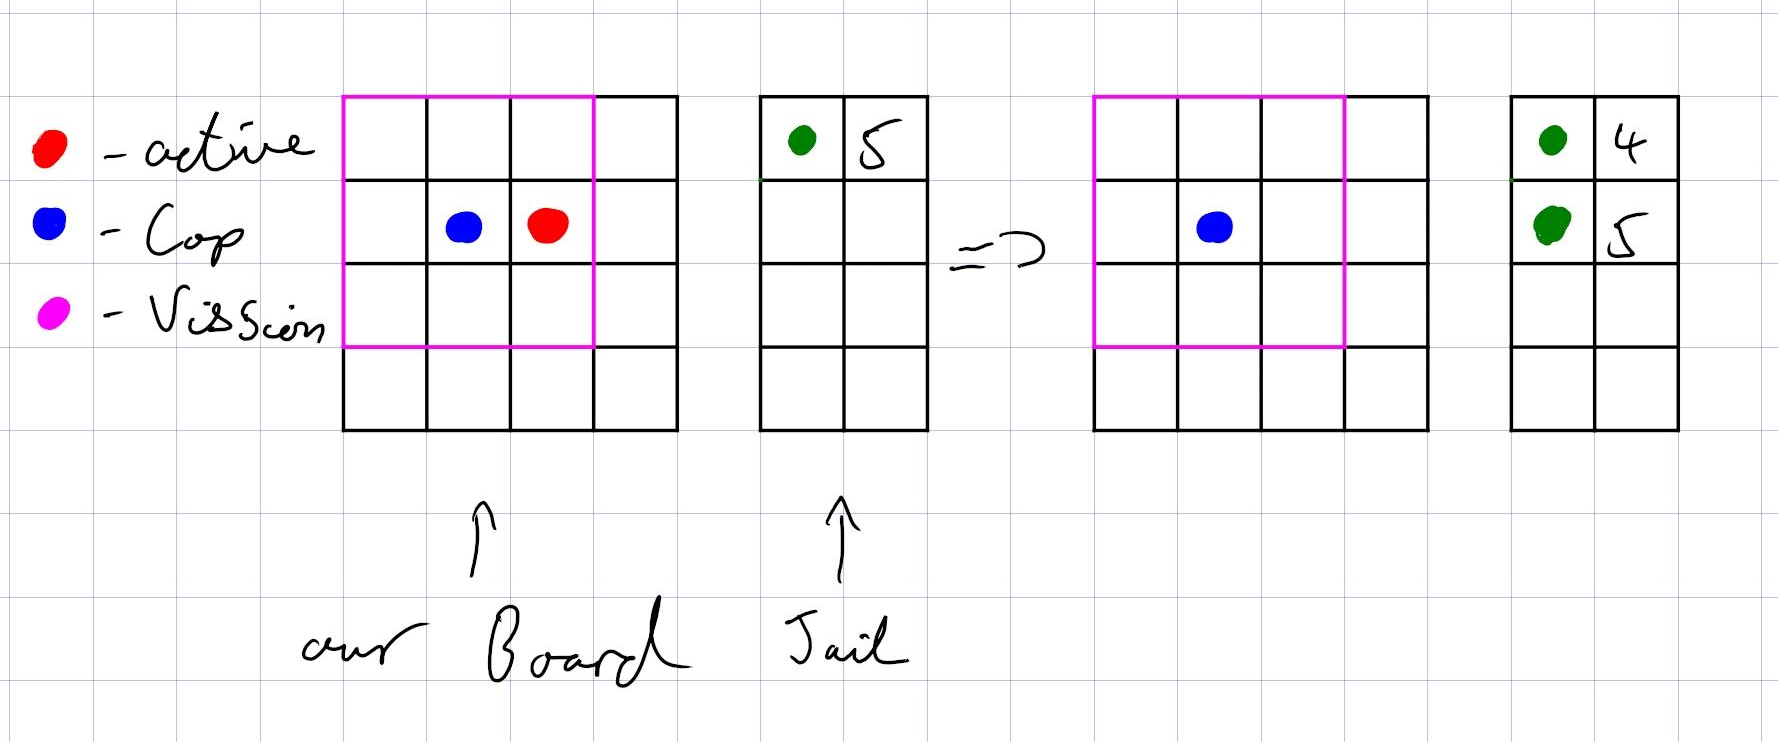 - active
- Cop
- Vission
5
=>
4
5
our Board
Jail